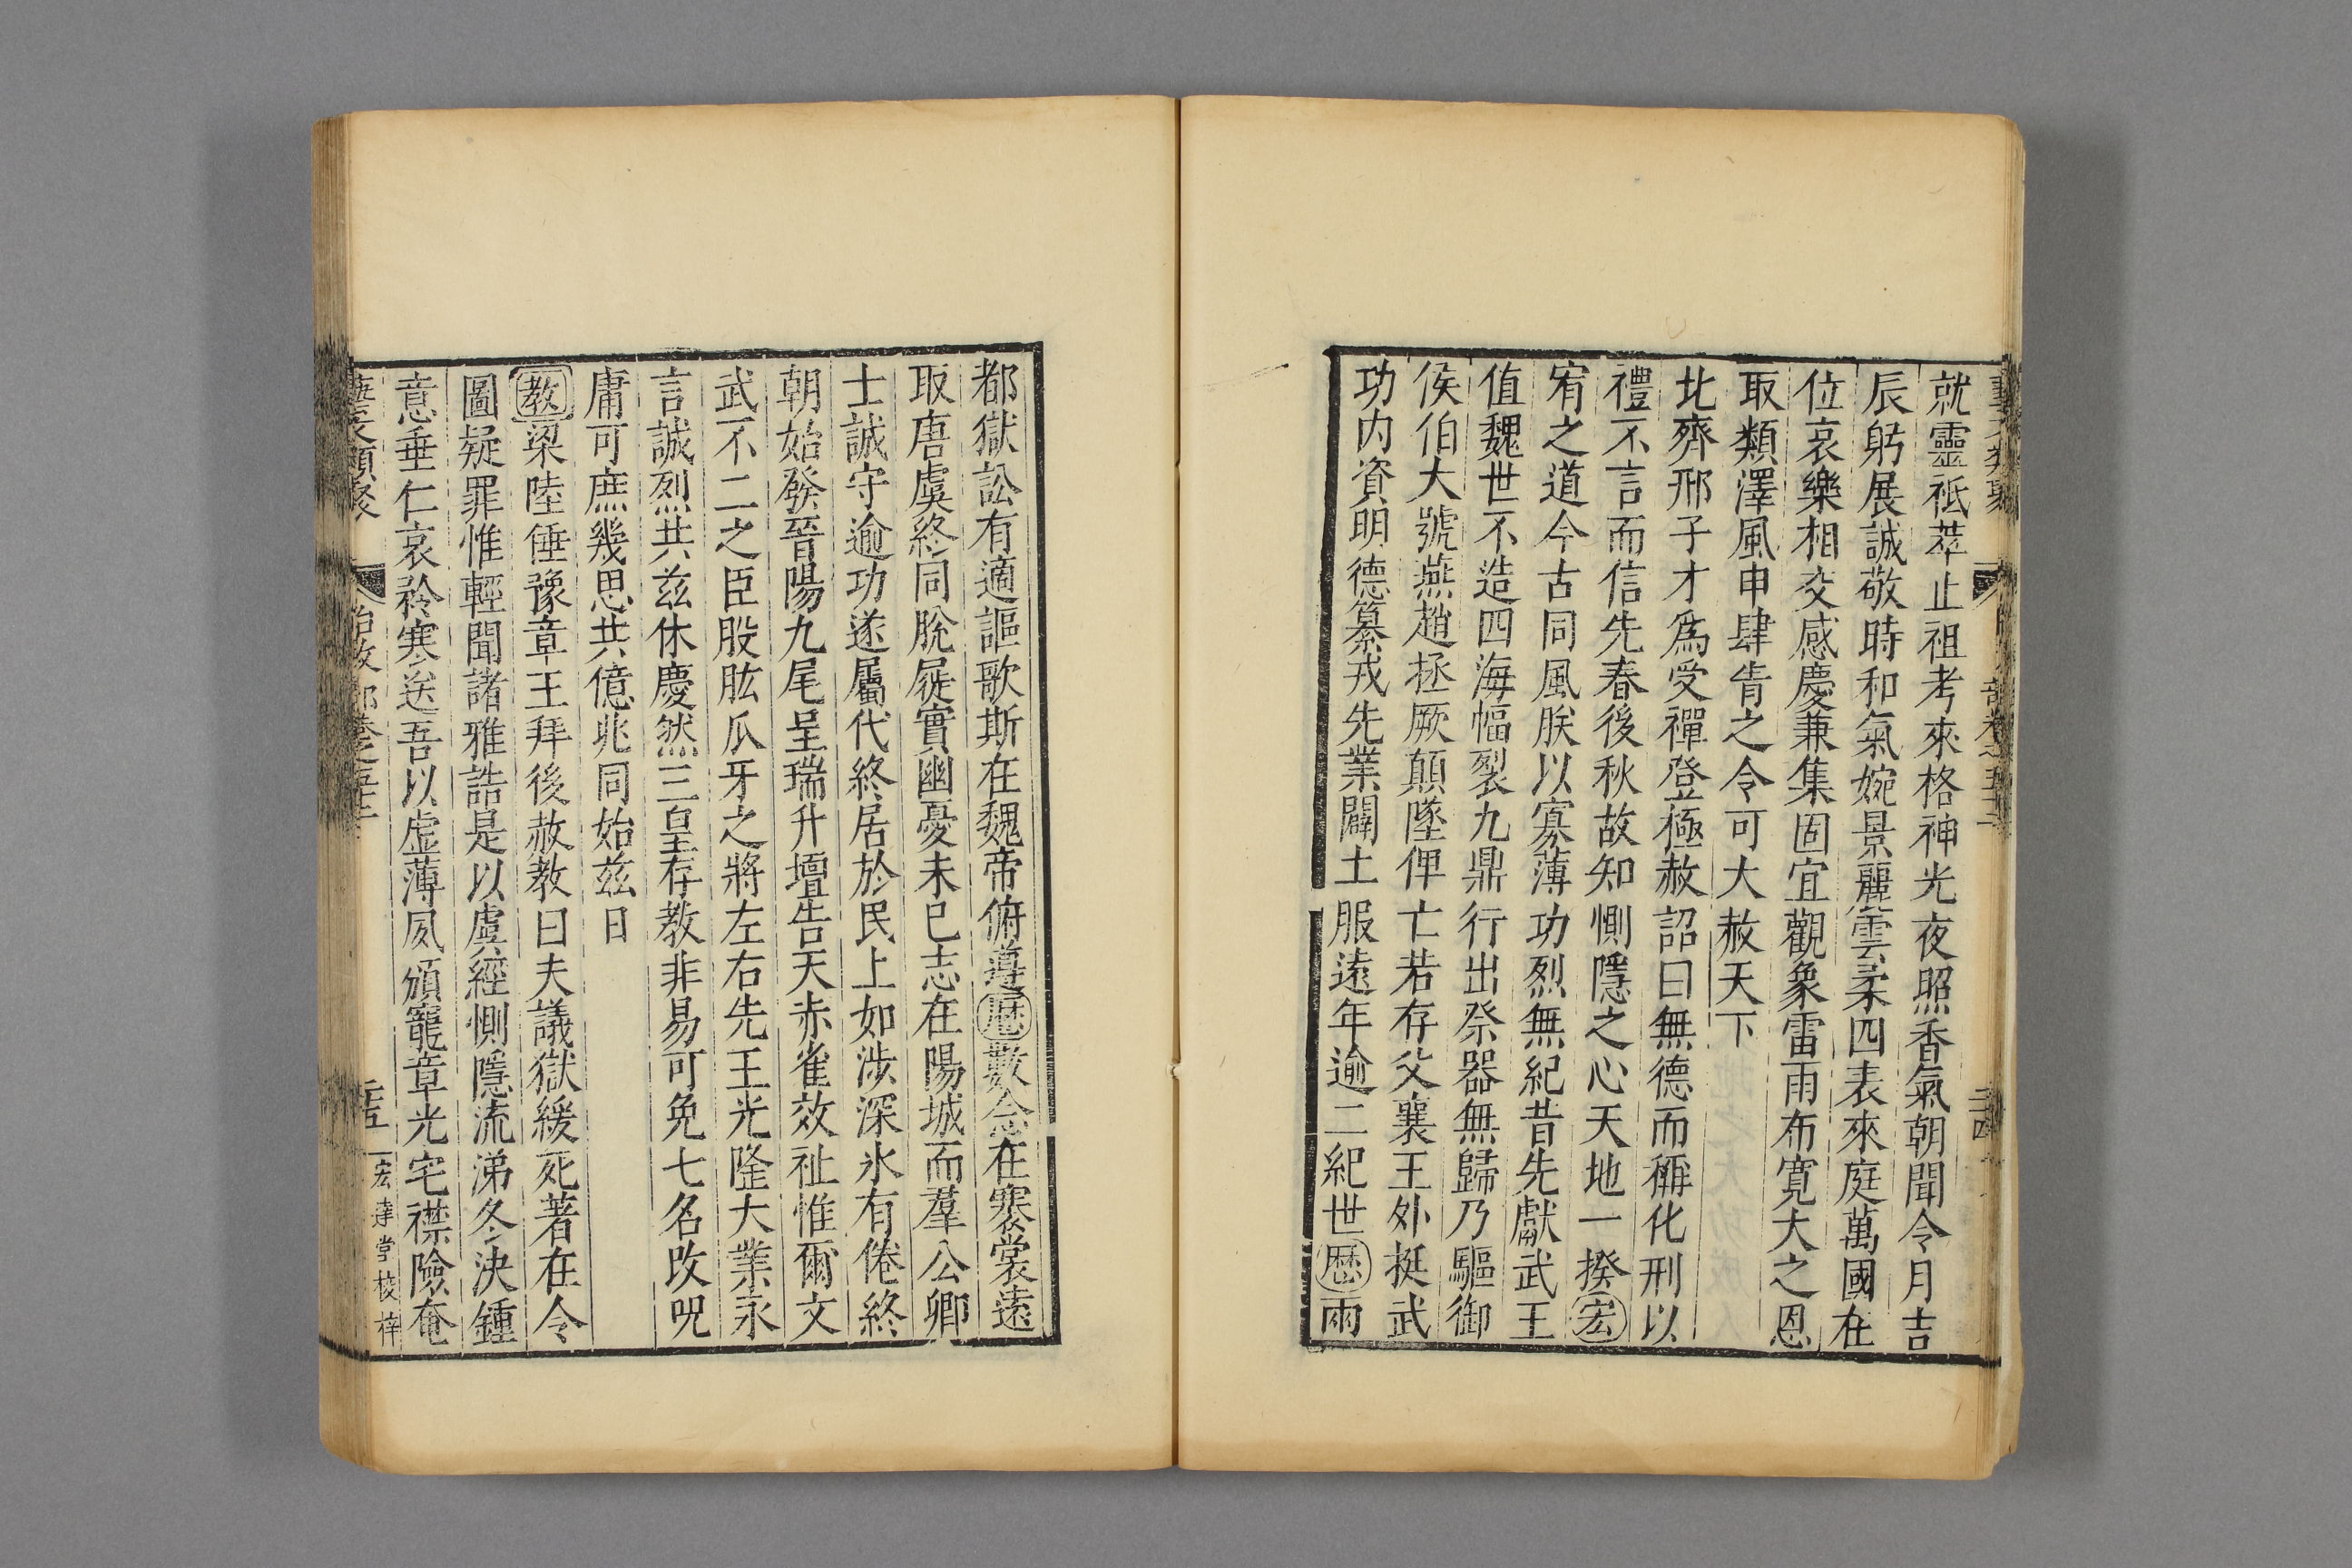 就靈祗萃止祖考來格神光夜照香氣朝聞令月吉
辰躬展誠敬時和氣婉景麗雲柔四表來庭萬國在
位哀樂相交感慶兼集固宜觀象雷雨布寬大之恩
取類澤風申肆眚之令可大赦天下
北齊邢子才爲受禪登極赦詔曰無德而稱化刑以
禮不言而信先春後秋故知惻隱之心天地一揆宏
宥之道今古同風朕以寡薄功烈無紀昔先獻武王
值魏世不造四海幅裂九鼎行出祭器無歸乃驅御
侯伯大號燕趙拯厥顛墜俾亡若存父襄王外挺武
功内資明德纂戎先業闢土服遠年逾二紀世歷兩
都獄訟有適謳歌斯在魏帝俯遵歷數念在褰裳遠
取唐虞終同脫屣實幽憂未已志在陽城而羣公卿
士誠守逾功遂屬代終居於民上如涉深氷有倦終
朝始發晉陽九尾呈瑞升壇告天赤雀效祉惟爾文
武不二之臣股肱瓜牙之將左右先王光隆大業永
言誠烈共兹休慶然三皇存教非易可免七名改呪
庸可庶幾思共億兆同始兹日
教梁陸倕豫章王拜後赦教曰夫議獄緩死著在令
圖疑罪惟輕聞諸雅誥是以虞經惻隱流涕冬決鍾
意垂仁哀矜寒送吾以虛薄夙頒寵章光宅襟險奄
五
宏達堂校梓